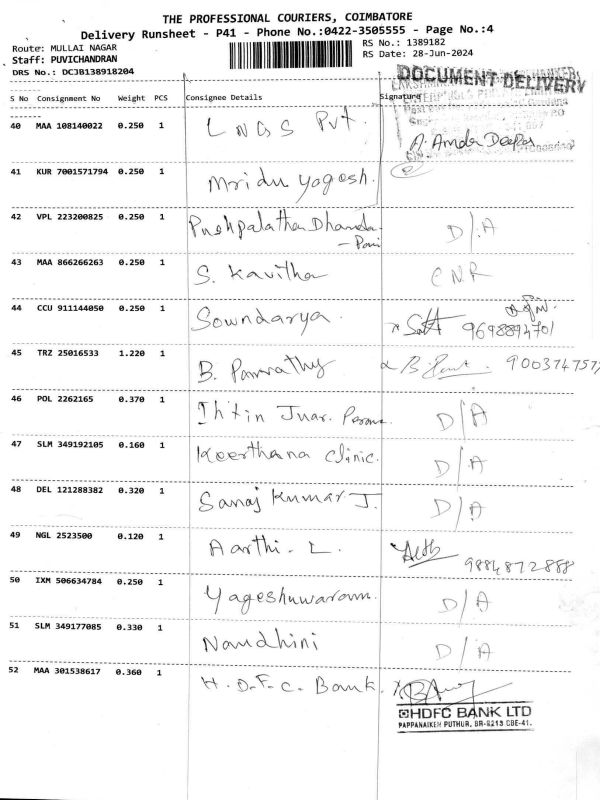 THE PROFESSIONAL COURIERS, COIMBATORE
Delivery Runsheet - P41 - Phone No.:0422-3505555 - Page No.:4
Route: MULLAI NAGAR RS No.: 1389182
Staff: PUVICHANDRAN RS Date: 28-Jun-2024
DRS No.: DCJB138918204
DOCUMENT DELIVERY
S No Consignment No Weight PCS Consignee Details Signature
40 MAA 108140022 0.250 1 L N G S Pvt.
41 KUR 7001571794 0.250 1 Mridu yogesh.
42 VPL 223200825 0.250 1 Pushpalatha Dhanda- D/A
43 MAA 866266263 0.250 1 S. Kavitha CNR
44 CCU 911144050 0.250 1 Sowndarya. 9698894701
45 TRZ 25016533 1.220 1 B. Parvathy 9003747577
46 POL 2262165 0.370 1 D/A
47 SLM 349192105 0.160 1 Keerthana clinic. D/A
48 DEL 121288382 0.320 1 Sanaj Kumar J. D/A
49 NGL 2523500 0.120 1 Aarthi. L. 9884872888
50 IXM 506634784 0.250 1 Yageshuwaran. D/A
51 SLM 349177085 0.330 1 Nandhini D/A
52 MAA 301538617 0.360 1 H.D.F.C. Bank.
HDFC BANK LTD
PAPPANAIKEN PUTHUR, BR-9213 CBE-41.